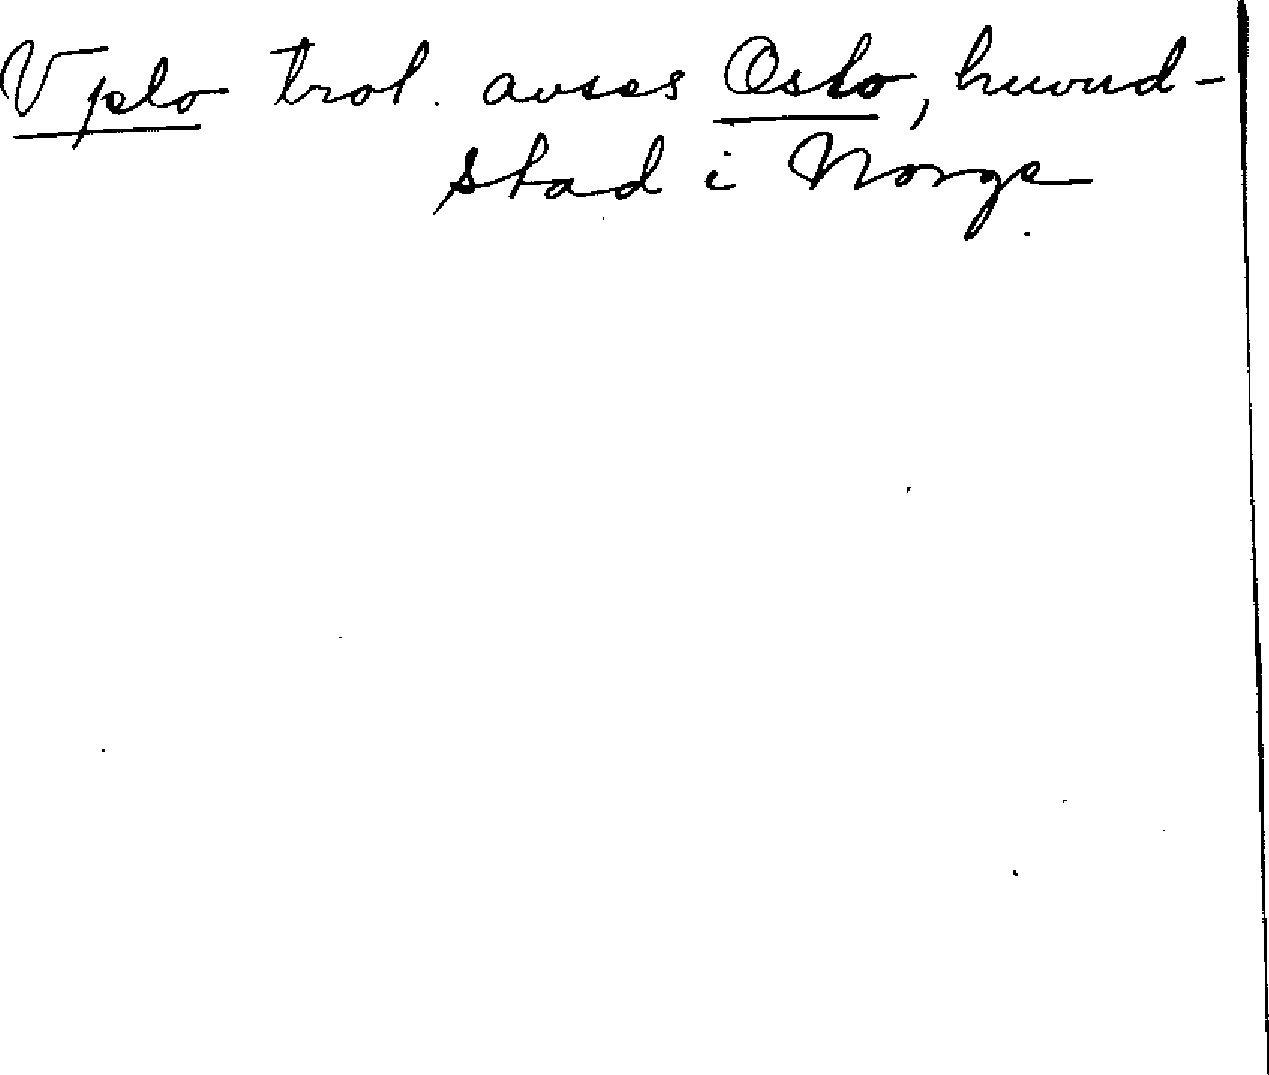 Vplo trol. avses Oslo, huvud-
stad i Norge.